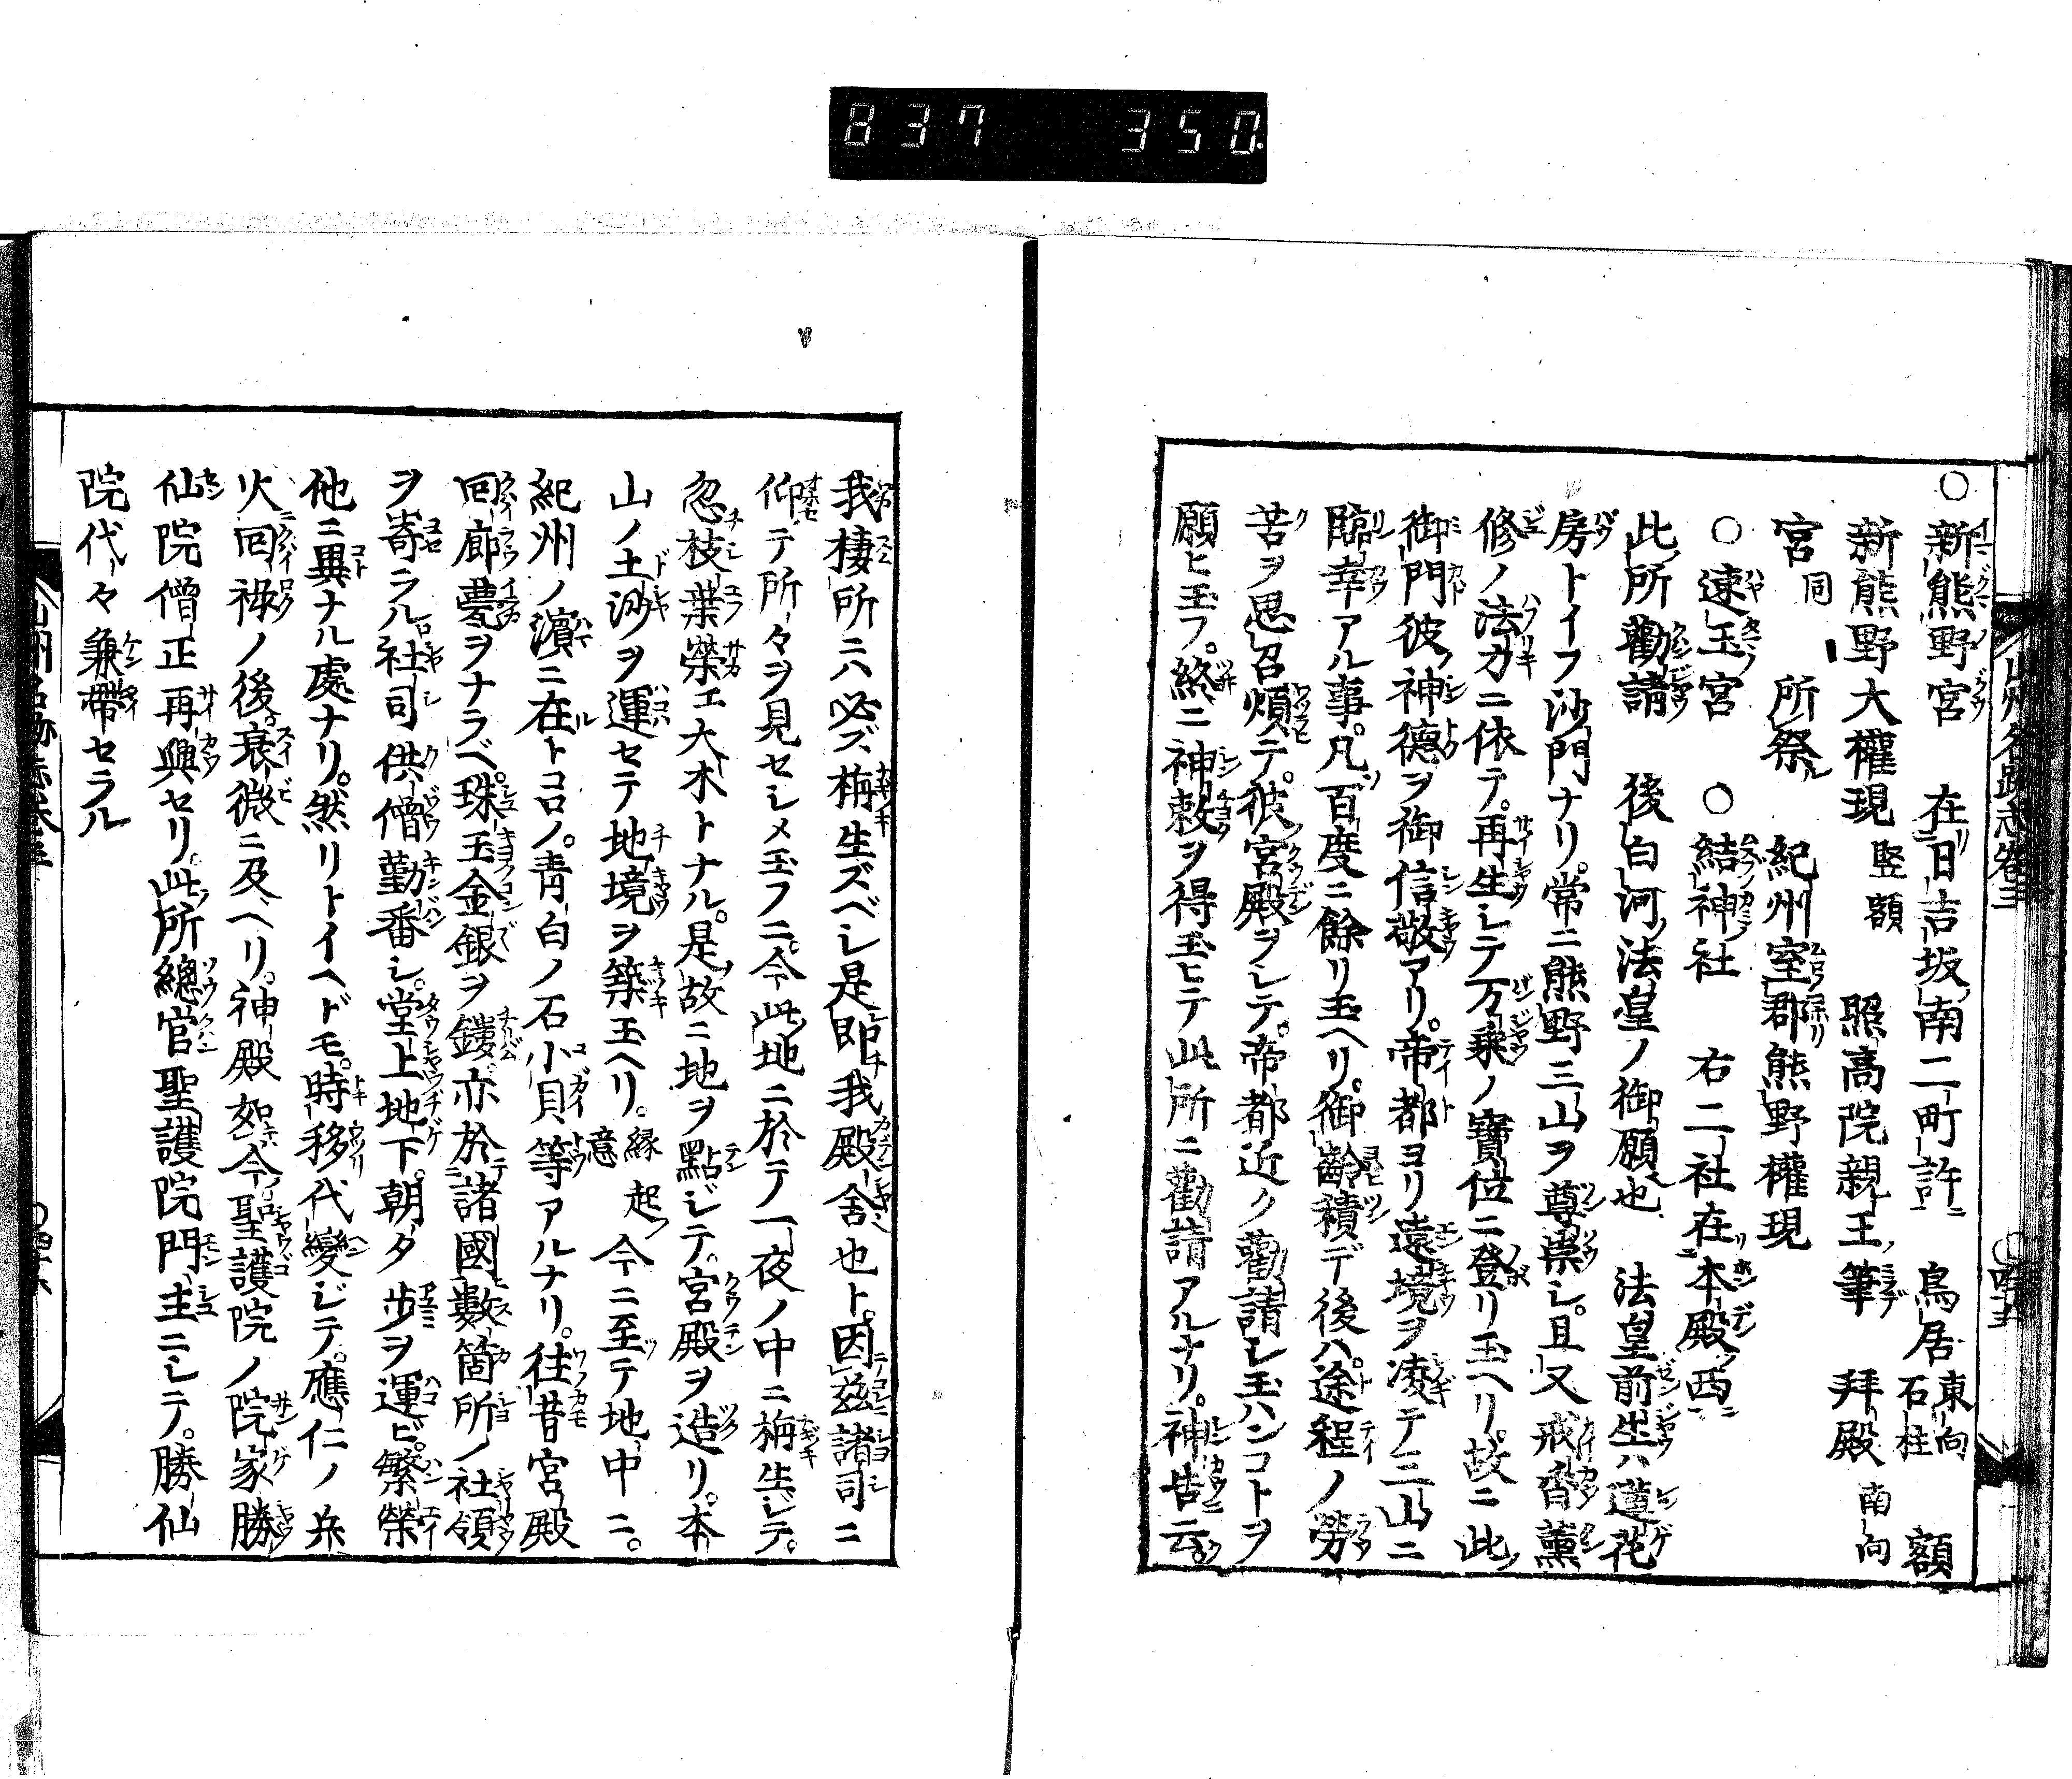 837 350
○新熊野宮 在日吉坂南二町許 鳥居東向石柱 額
新熊野大權現竪額 照高院親王筆 拜殿南向
宮同 所祭 紀州室郡熊野權現
○速玉宮 ○結神社 右二社在本殿西
此所勸請 後白河法皇ノ御願也 法皇前生ハ蓮花
房トイフ沙門ナリ。常ニ熊野三山ヲ尊崇シ。且又戒香薫
修ノ法力ニ依テ。再生シテ万乗ノ寶位ニ登リ玉ヘリ。故ニ此
御門彼神德ヲ御信敬アリ。帝都ヨリ遠境ヲ凌テ三山ニ
臨幸アル事。凡百度ニ餘リ玉ヘリ。御齡積デ後ハ途程ノ勞
苦ヲ思召煩テ。彼宮殿ヲシテ。帝都近ク勸請シ玉ハンコトヲ
願ヒ玉フ。終ニ神敕ヲ得玉ヒテ此所ニ勸請アルナリ。神告云
我棲所ニハ必ズ梛生ズベシ是即我殿舍也ト。因茲諸司ニ
仰テ所々ヲ見セシメ玉フニ。今此地ニ於テノ一夜ノ中ニ梛生ジテ。
忽枝葉榮エ大木トナル。是故ニ地ヲ點ジテ。宮殿ヲ造リ。本
山ノ土沙ヲ運セテ地境ヲ築玉ヘリ。縁起意 今ニ至テ地中ニ。
紀州ノ濱ニ在トコロノ。青白ノ石小貝等アルナリ。往昔宮殿
回廊甍ヲナラベ。珠玉金銀ヲ鏤。亦於諸國數箇所ノ社領
ヲ寄ラル社司供僧勤番シ。堂上地下。朝夕歩ヲ運ビ。繁榮
他ニ異ナル處ナリ。然リトイヘドモ。時移代變ジテ。應仁ノ兵
火回禄ノ後。衰微ニ及ヘリ。神殿如今聖護院ノ院家勝
仙院僧正再興セリ。此所總官聖護院門主ニシテ。勝仙
院代々兼帶セラル